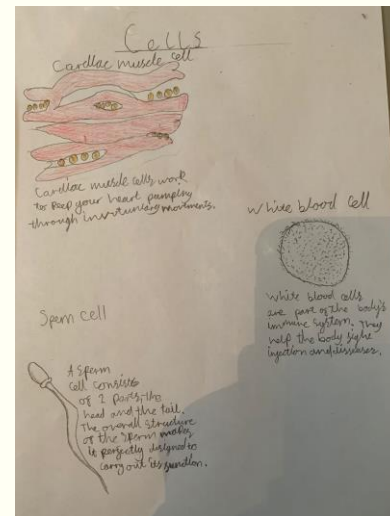 Cells
Cardiac muscle cell
Cardiac muscle cells work
to keep your heart pumping
through involuntary movements.
White blood cell
White blood cells
are part of the body's
immune system. They
help the body fight
infection and diseases.
Sperm cell
A sperm
cell consists
of 2 parts, the
head and the tail.
The overall structure
of the sperm makes
it perfectly designed to
carry out its function.